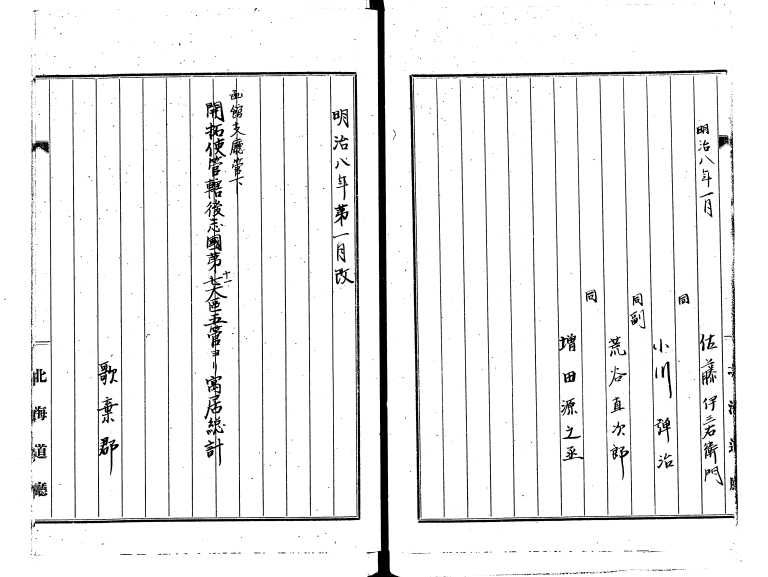 明治八年一月
佐藤伊三右衛門
同
小川弾治
同副
荒谷直次郎
同
増田源之丞
明治八年第一月改
函館支廳管下
開拓使管轄後志國第七大區五管ヨリ寓居総計
十一
歌棄郡
北海道廳